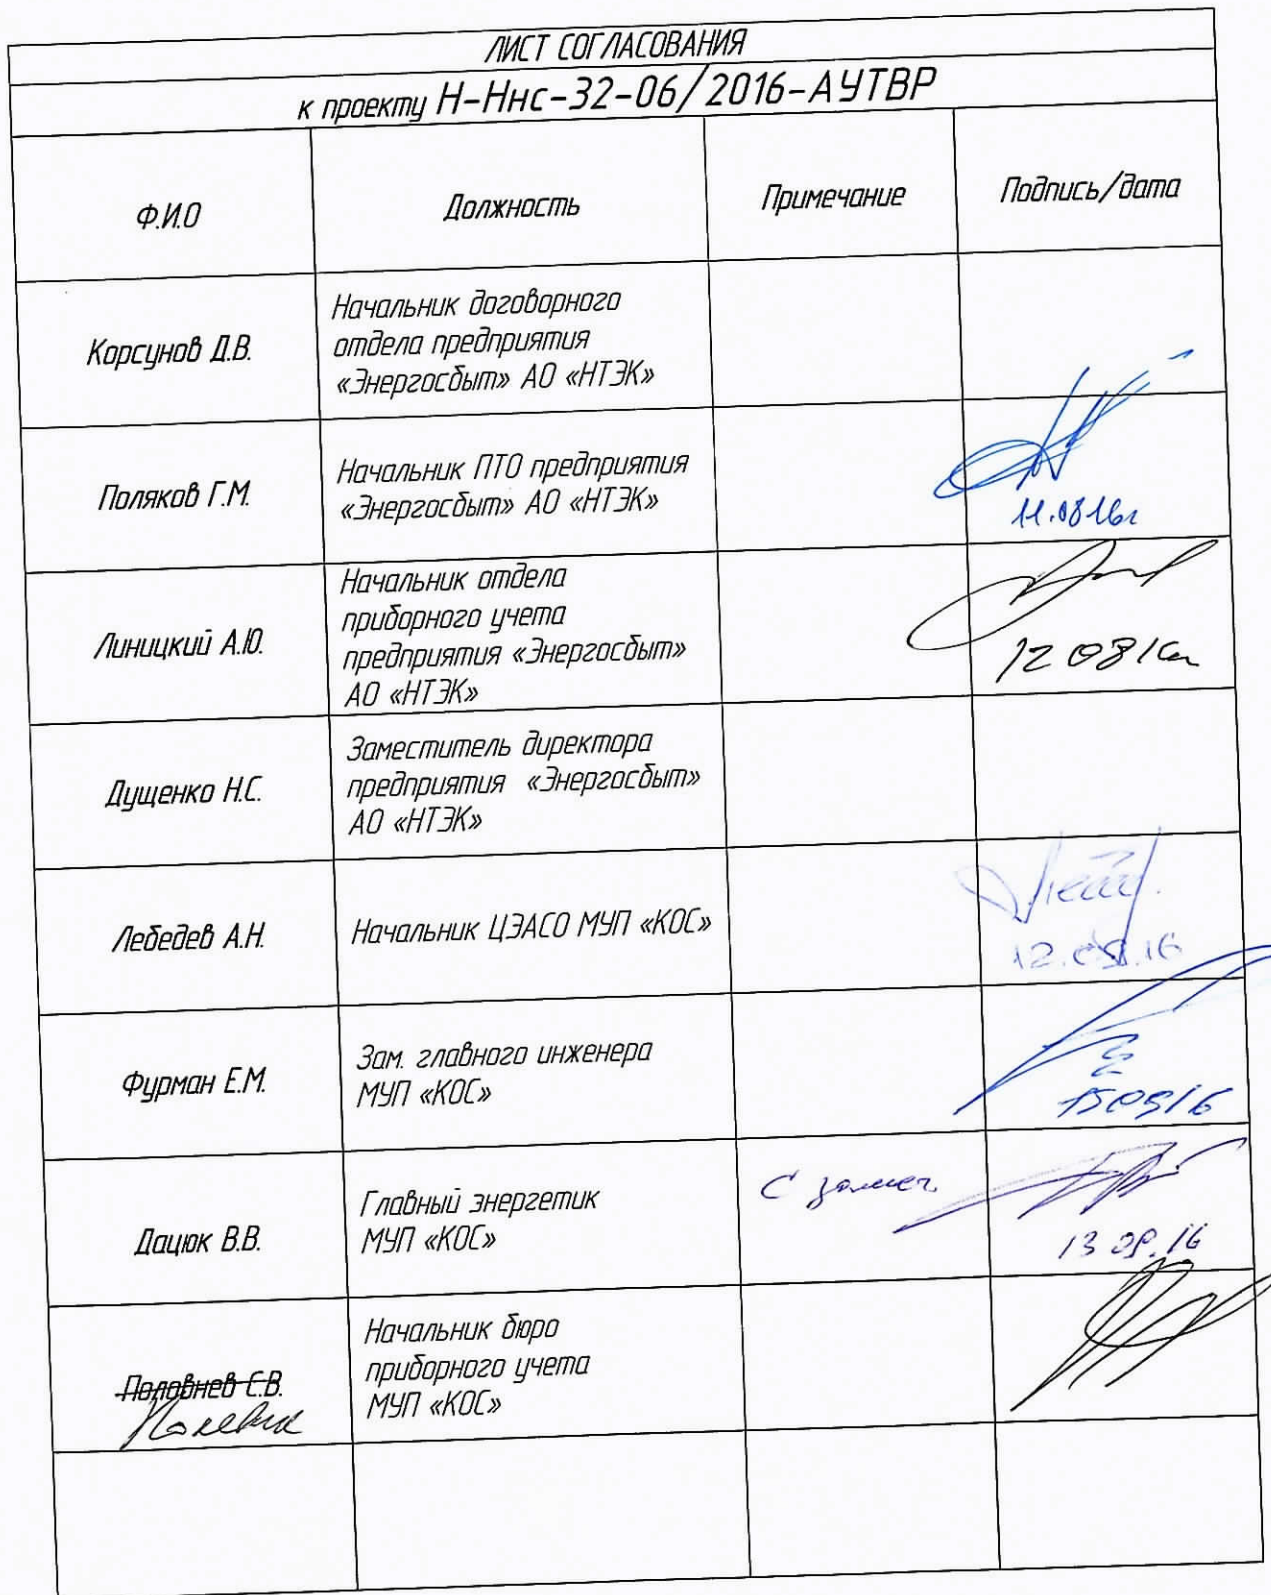 ЛИСТ СОГЛАСОВАНИЯ
к проекту Н-Ннс-32-06/2016-АУТВР
Ф.И.О
Должность
Примечание
Подпись/дата
Корсунов Д.В.
Начальник договорного
отдела предприятия
«Энергосбыт» АО «НТЭК»
Поляков Г.М.
Начальник ПТО предприятия
«Энергосбыт» АО «НТЭК»
11.08.16г
Линицкий А.Ю.
Начальник отдела
приборного учета
предприятия «Энергосбыт»
АО «НТЭК»
12 08 16г
Дущенко Н.С.
Заместитель директора
предприятия «Энергосбыт»
АО «НТЭК»
Лебедев А.Н.
Начальник ЦЭАСО МУП «КОС»
Фурман Е.М.
Зам. главного инженера
МУП «КОС»
Дацюк В.В.
Главный энергетик
МУП «КОС»
С замеч.
Половнев С.В.
Начальник бюро
приборного учета
МУП «КОС»